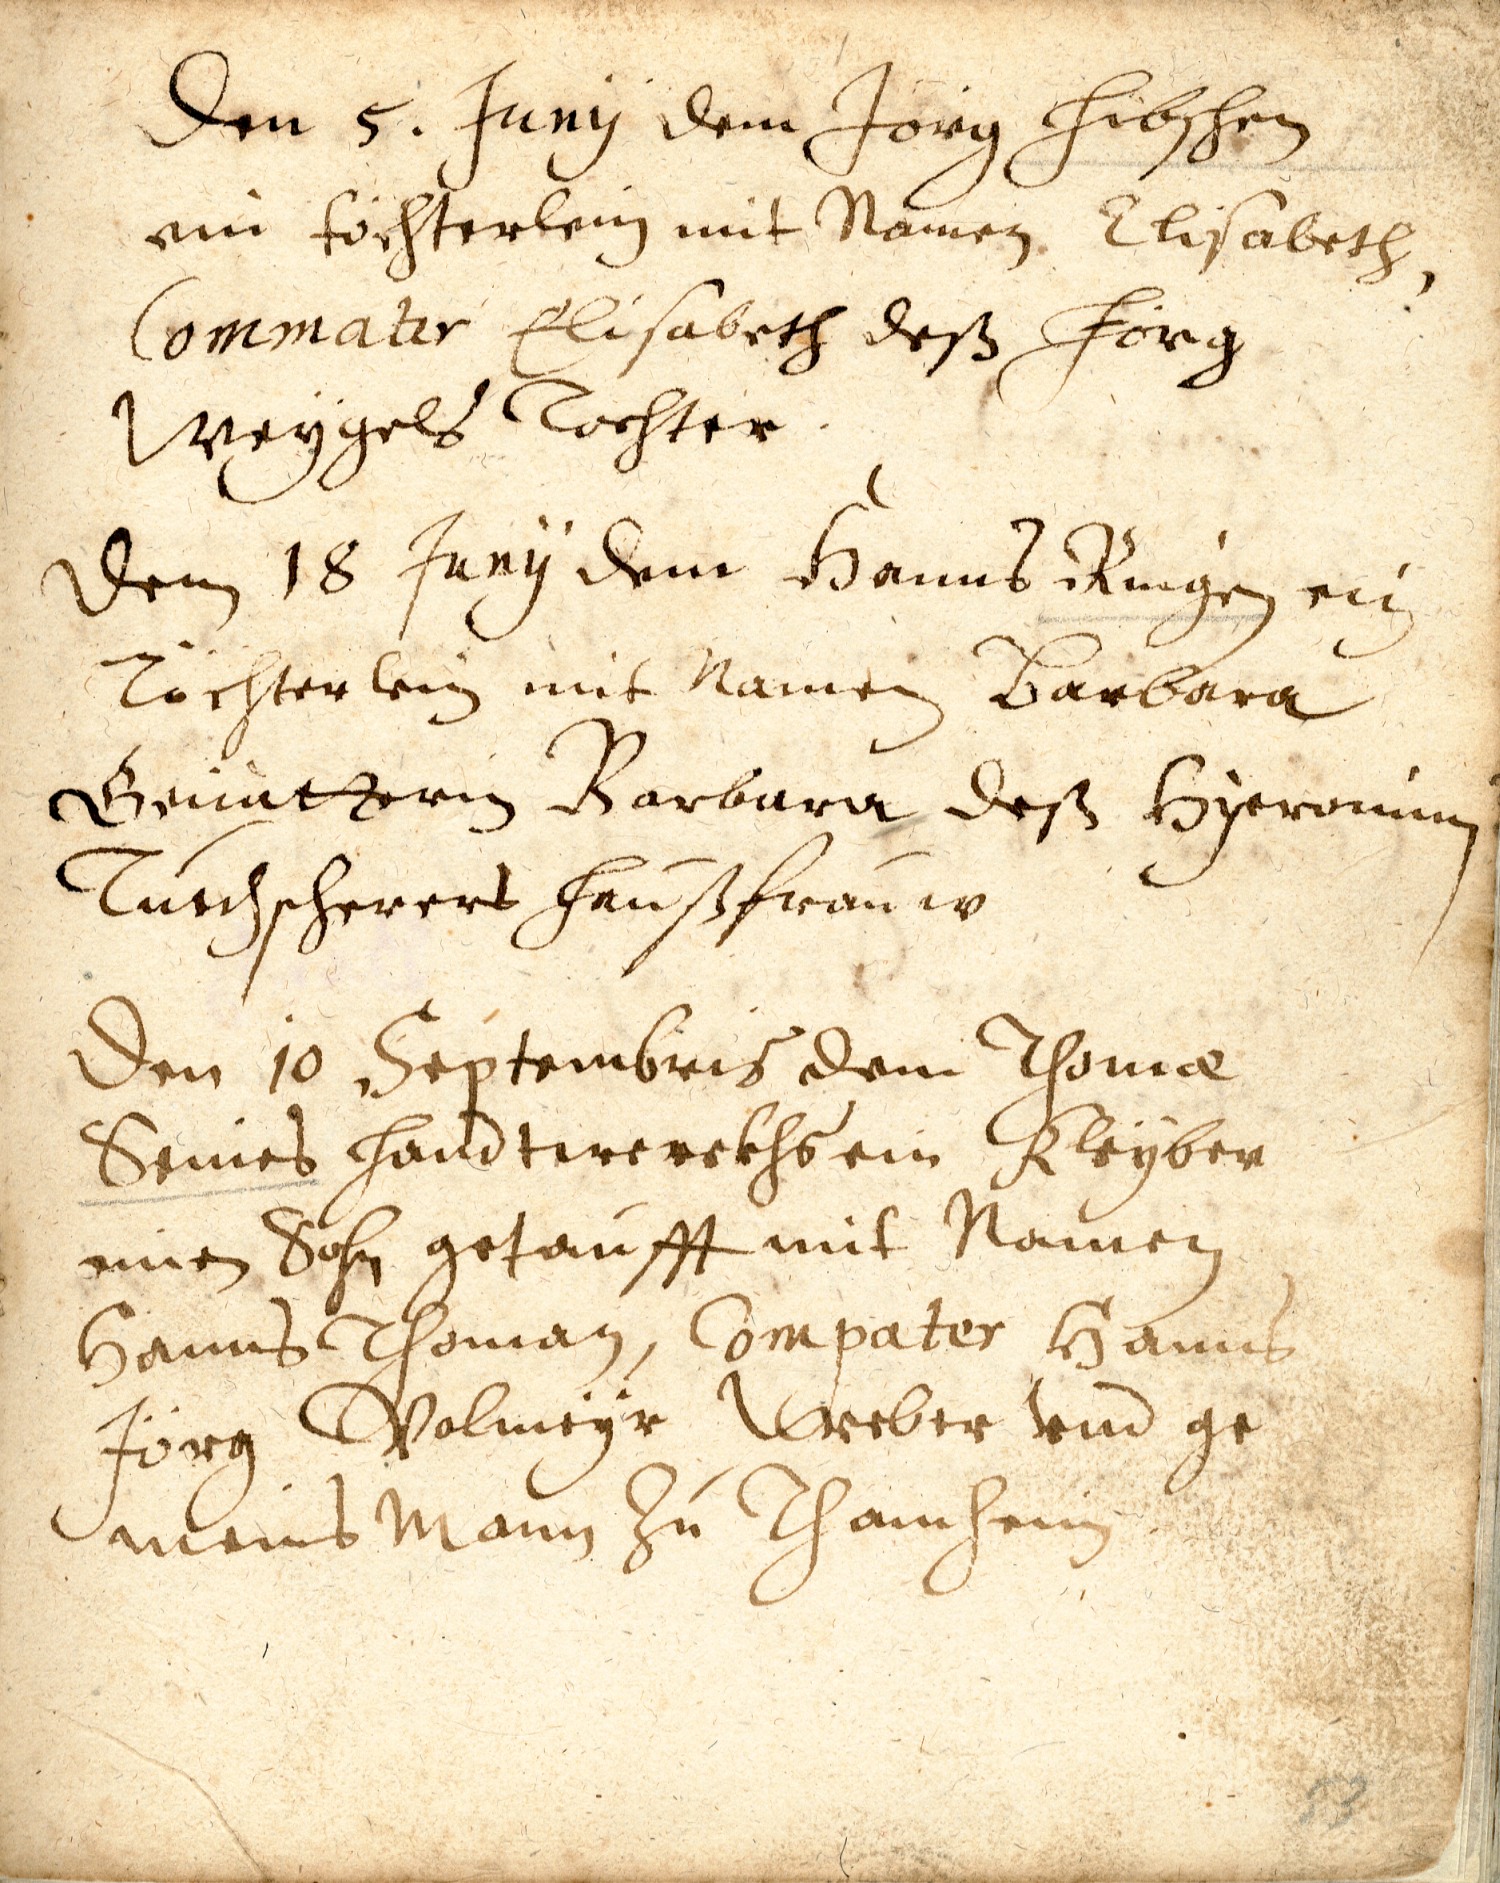 Den 5. Junÿ dem Jörg Hibschen
ein töchterlein mit Namen Elisabeth,
Commater Elisabeth deß Jörg
Weÿgels Tochter.
Den 18 Junÿ dem Hanns Ringen ein
Töchterlein mit Namen Barbara
Gevatterin Barbara deß Hÿeronimi
Tuechscherers Haußfrauw
Den 10 Septembris dem Thomæ
Seines Handtwerekhs ein Kleÿber
einen Sohn getaufft mit Namen
Hanns Thoman, Compater Hanns
Jörg Wolmeÿr Weber vnd ge
meins Mann zu Thainhein
53